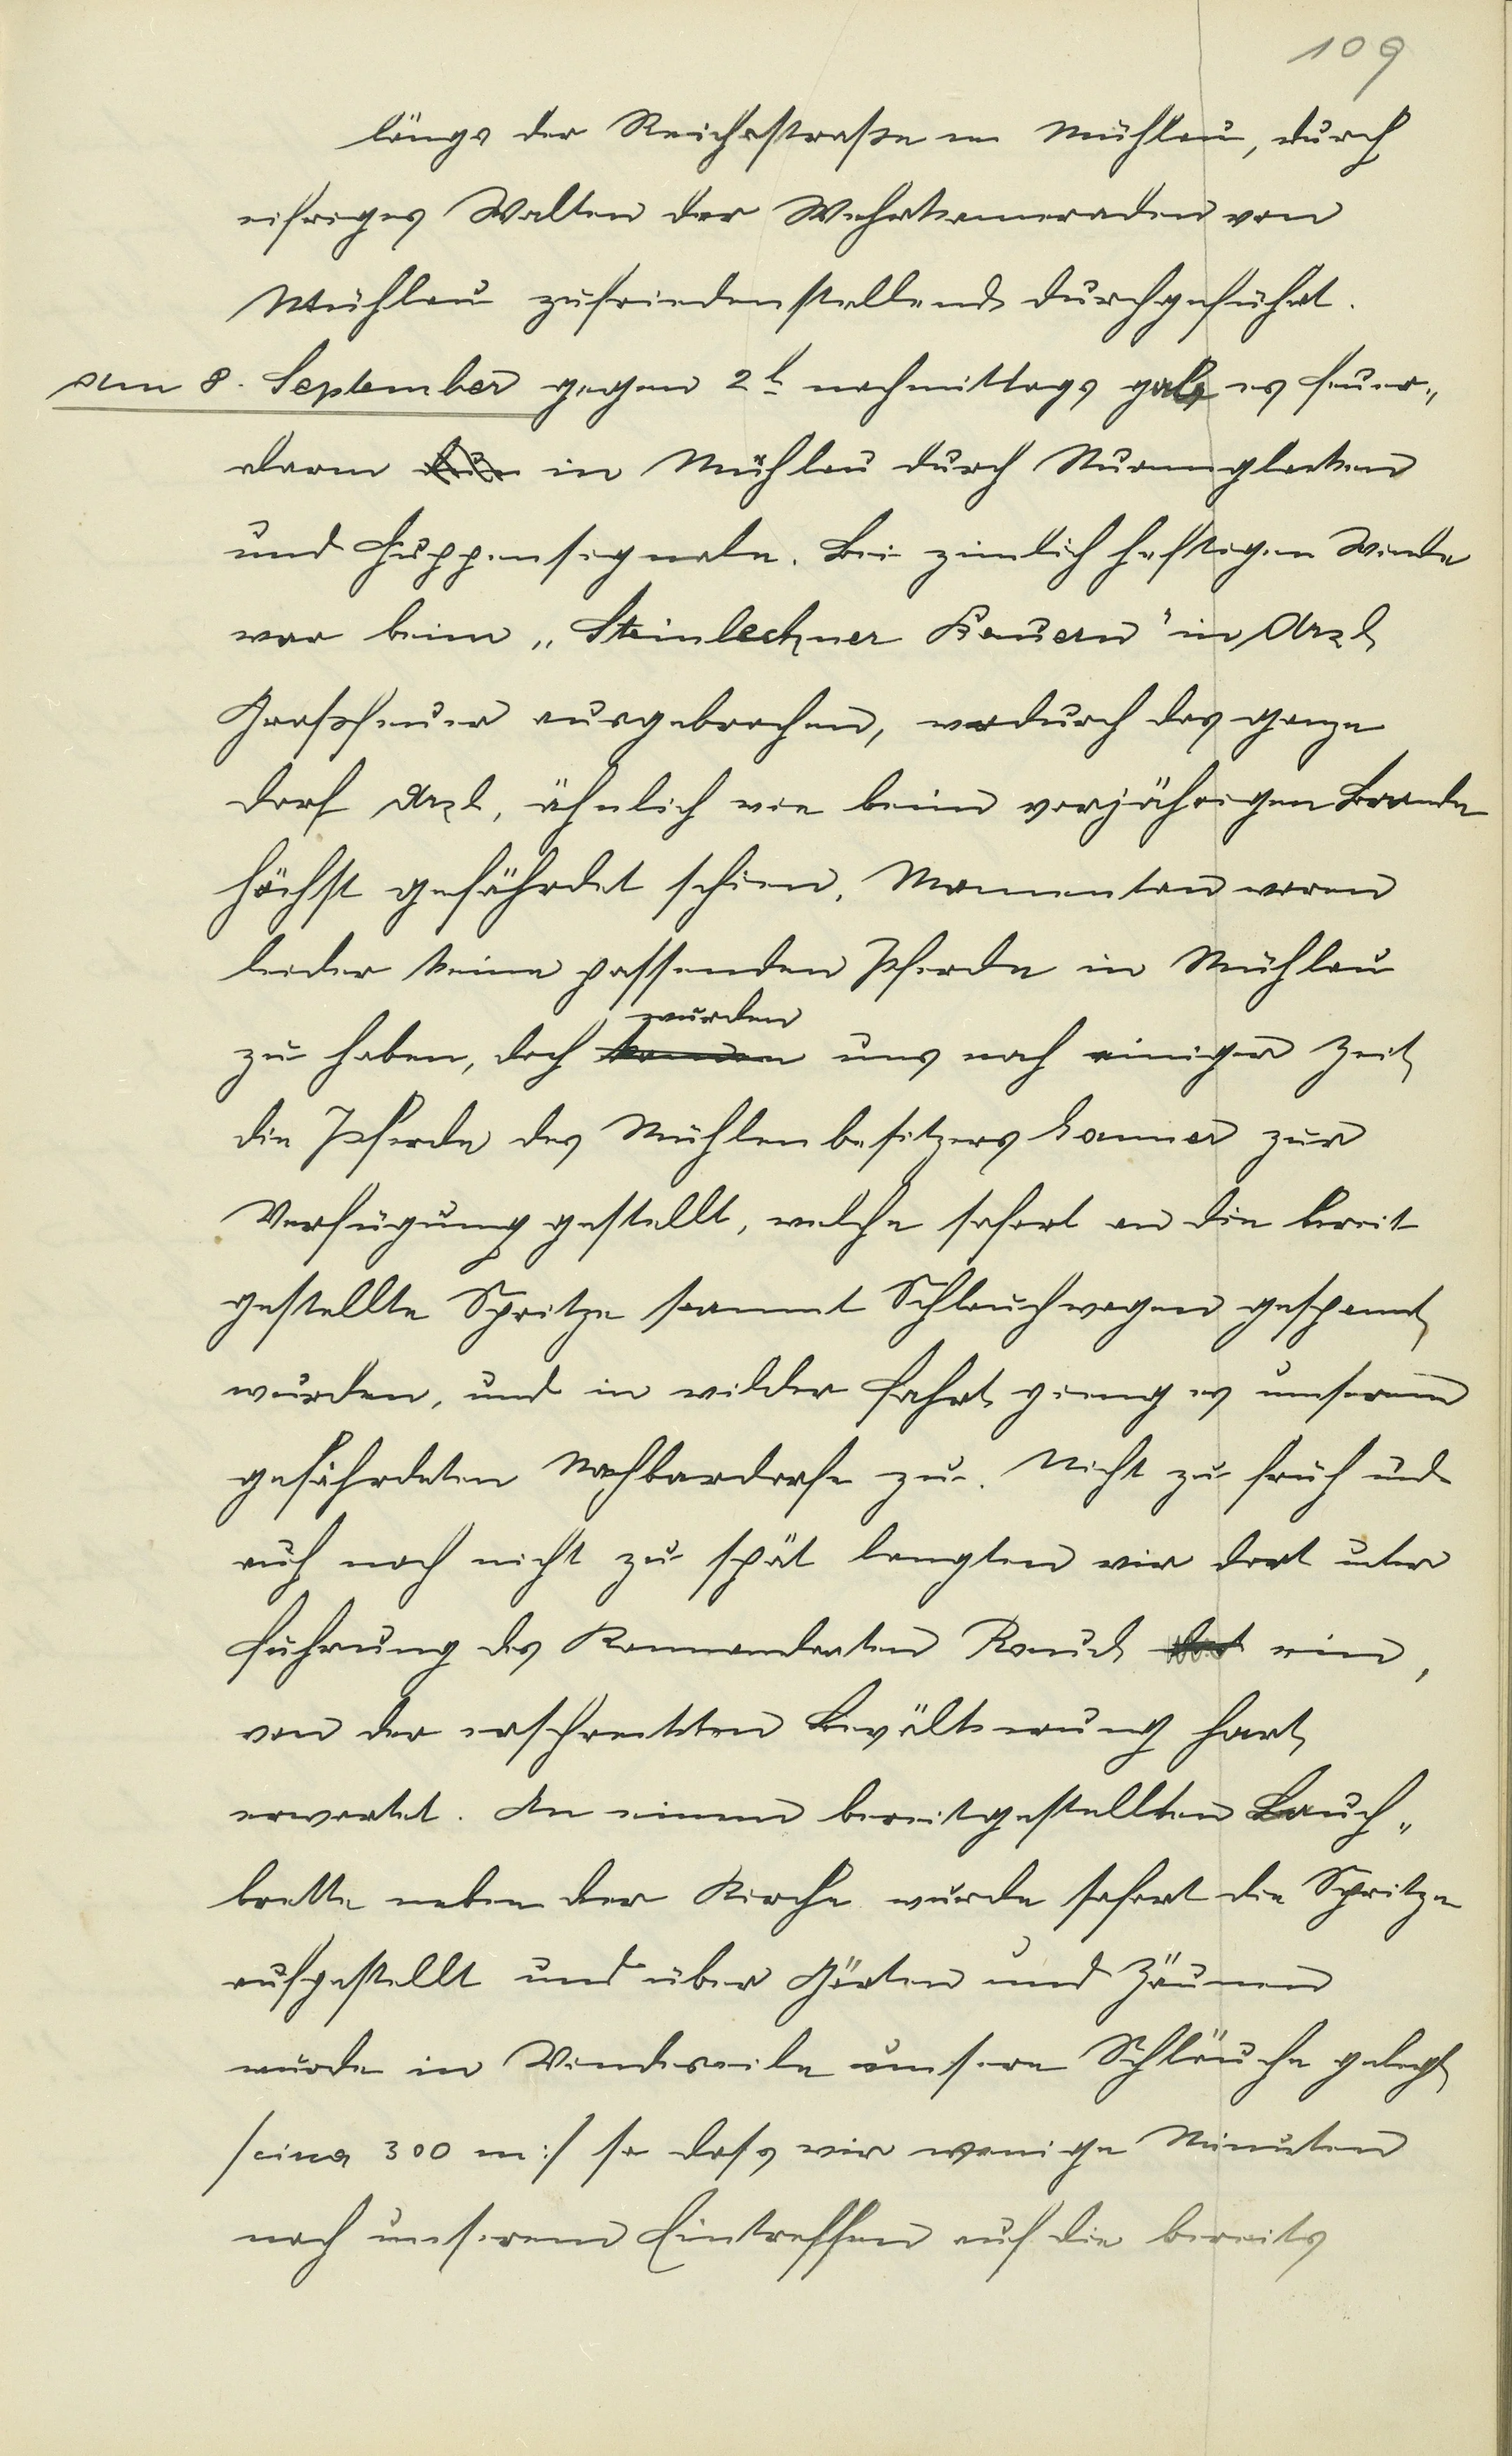 109
längs der Reichsstraße in Mühlau, durch
eifriges Walten der Wehrkameraden von
Mühlau zufriedenstellend durchgeführt.
Am 8. September gegen 2 h nachmittags gab es Feuer„
alarm in Mühlau durch Sturmglocken
und Huppensignale. Bei zimlich heftigen Winde
war beim „Steinlechner Bauern" in Arzl
Großfeuer ausgebrochen, wodurch das ganze
Dorf Arzl, ähnlich wie beim vorjährigen Brande
höchst gefährdet schien. Momentan waren
leider keine passenden Pferde in Mühlau
zu haben, doch wurden uns nach einiger Zeit
die Pferde des Mühlenbesitzers Lanner zur
Verfügung gestellt, welche sofort an die bereit
gestellte Spritze sammt Schlauchwagen gespannt
wurden, und in wilder Fahrt gieng es unserem
gefährdeten Nachbardorfe zu. Nicht zu früh und
auch noch nicht zu spät langten wir dort unter
Führung des Kommandanten Rauch ein,
von der erschreckten Bevölkerung hart
erwartet. An einem bereitgestellten Bauch„
brette neben der Kirche wurde sofort die Spritze
aufgestellt und über Gärten und Zäunen
wurde in Windeseile unsere Schläuche gelegt
/circa 300 m:/ so dass wir wenige Minuten
nach unserem Eintreffen auf die bereits